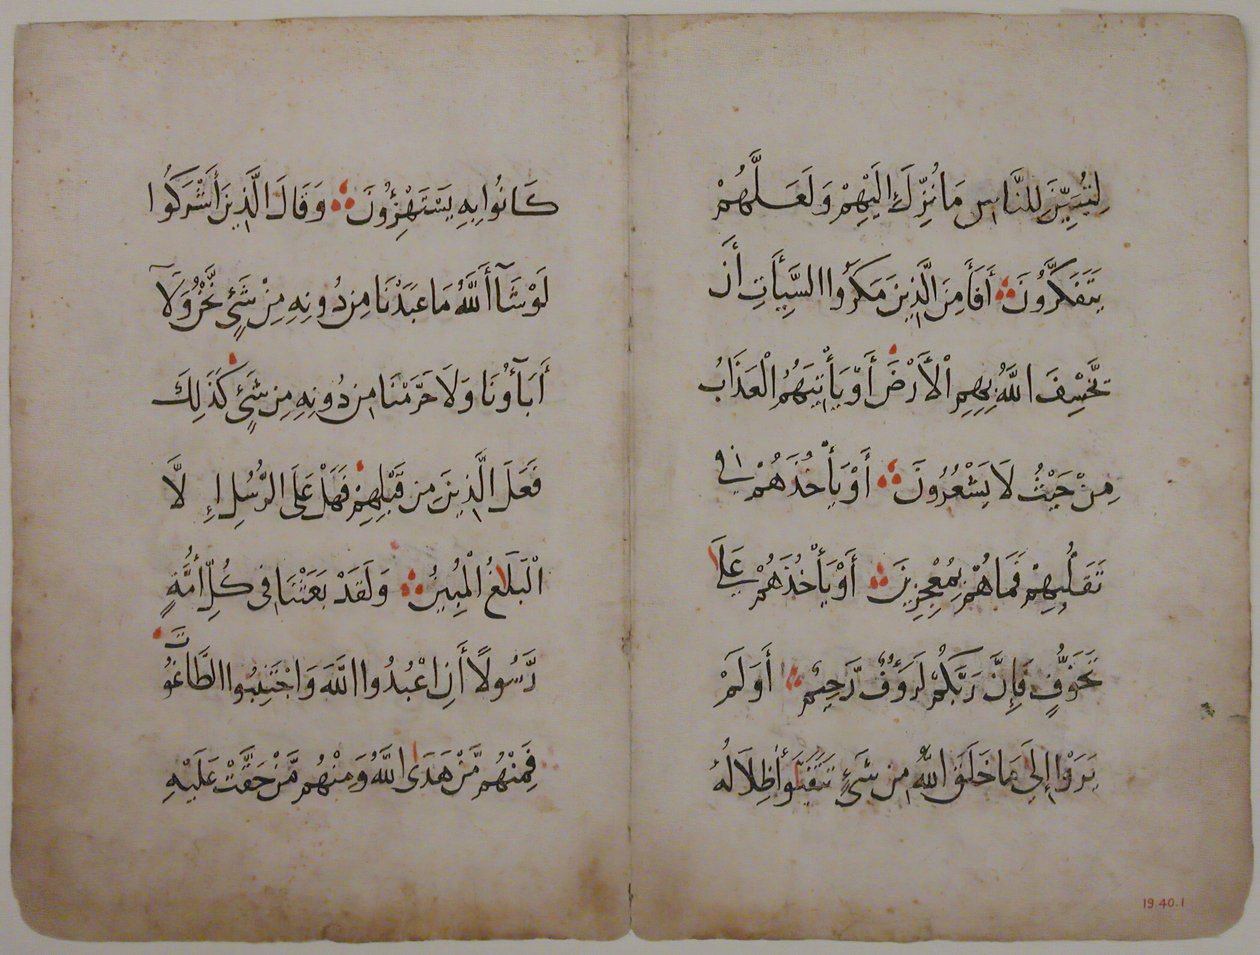 لِتُبَيِّنَ لِلنَّاسِ مَا نُزِّلَ إِلَيْهِمْ وَلَعَلَّهُمْ
يَتَفَكَّرُونَ أَفَأَمِنَ الَّذِينَ مَكَرُوا السَّيِّأَتِ أَن
يَخْسِفَ اللَّهُ بِهِمِ الْأَرْضَ أَوْ يَأْتِيَهُمُ الْعَذَابُ
مِنْ حَيْثُ لَا يَشْعُرُونَ أَوْ يَأْخُذَهُمْ فِي
تَقَلُّبِهِمْ فَمَا هُمْ بِمُعْجِزِينَ أَوْ يَأْخُذَهُمْ عَلَى
تَخَوُّفٍ فَإِنَّ رَبَّكُمْ لَرَؤُفٌ رَّحِيمٌ أَوَلَمْ
يَرَوْا إِلَى مَا خَلَقَ اللَّهُ مِن شَيْءٍ يَتَفَيَّؤُا ظِلَالُهُ
كَانُوا بِهِ يَسْتَهْزِؤُنَ وَقَالَ الَّذِينَ أَشْرَكُوا
لَوْ شَآءَ اللَّهُ مَا عَبَدْنَا مِن دُونِهِ مِنْ شَيْءٍ نَّحْنُ وَلَآ
أَبَآؤُنَا وَلَا حَرَّمْنَا مِن دُونِهِ مِن شَيْءٍ كَذَلِكَ
فَعَلَ الَّذِينَ مِن قَبْلِهِمْ فَهَلْ عَلَى الرُّسُلِ إِلَّا
الْبَلَاغُ الْمُبِينُ وَلَقَدْ بَعَثْنَا فِي كُلِّ أُمَّةٍ
رَّسُولًا أَنِ اعْبُدُوا اللَّهَ وَاجْتَنِبُوا الطَّاغُوتَ
فَمِنْهُم مَّنْ هَدَى اللَّهُ وَمِنْهُم مَّنْ حَقَّتْ عَلَيْهِ
19.40.1